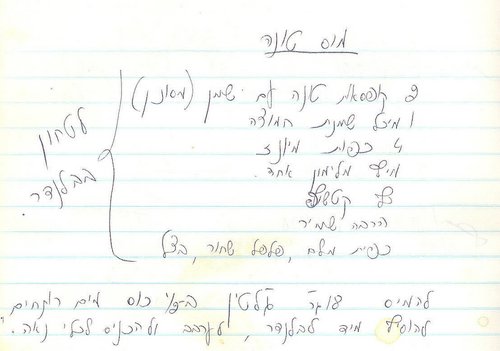 מוס טונה
2 קופסאות טונה עם שמן (מסונן)
1 מיכל שמנת חמוצה
4 כפות מיונז
מיץ מלימון אחד.
קטשופ
הרבה שמיר
כפית מלח, פלפל שחור, בצל
לטחון
בבלנדר
להמיס ג'לטין ב-½ כוס מים רותחים
להוסיף מיד לבלנדר, לערבב ולהכניס לכלי נאה.